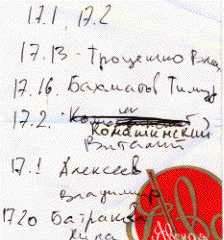 17.1, 17.2
17.13 - Троценко Вла
17.16. Бахматов Тимур
17.2.
Комашинский
Виталий
17.1 Алексеев
Владимир
17.20 Батракова